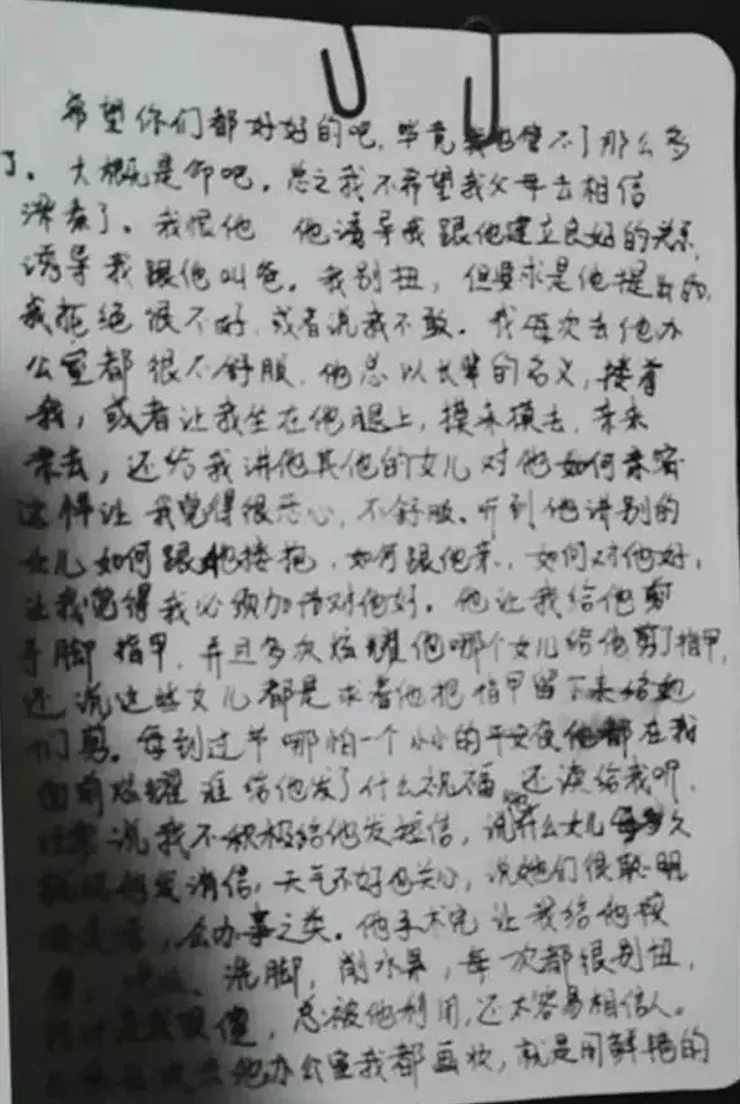 希望你们都好好的吧，毕竟我也管不了那么多
了。大概是命吧。总之我不希望我父母去相信
了。我恨他 他诱导我跟他建立良好的关系，
诱导我跟他叫爸。我别扭，但要求是他提出的，
我拒绝很不好，或者说我不敢。我每次去他办
公室都很不舒服，他总以长辈的名义，搂着
我，或者让我坐在他腿上，摸来摸去，亲来
亲去，还给我讲他其他的女儿对他如何亲密
这样让我觉得很恶心，不舒服。听到他讲别的
女儿如何跟他搂抱，如何跟他亲，如何对他好，
让我觉得我必须加倍对他好。他让我给他剪
手脚指甲，并且多次炫耀他哪个女儿给他剪了指甲，
还说这些女儿都是求着他把指甲留下来给她
们剪。每到过节哪怕一个小小的平安夜他都在我
面前炫耀谁给他发了什么祝福，还读给我听，
说我不积极给他发短信，说什么女儿多久
发消信，天气不好也关心，说她们很聪明
，会办事之类。他手术完让我给他按
、洗脚，削水果，每次都很别扭，
是我很傻，总被他利用，还太容易相信人。
去他办公室我都画妆，就是用鲜艳的